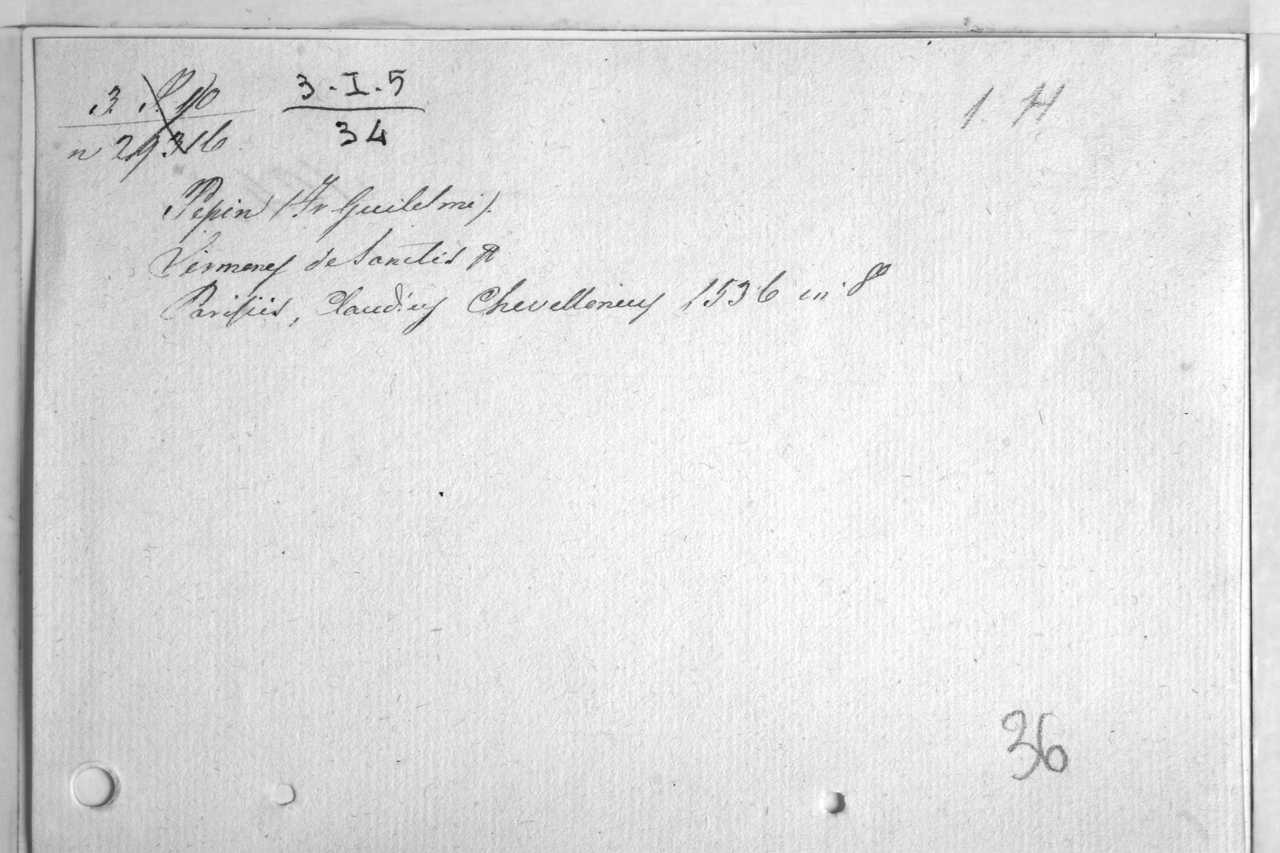 3 P 10
n 29316
3-I-5
34
1. H
Pepin (Fr Guilelmi).
Sermones de Sanctis
Parisiis, Claudius Chevellonius 1536 in 8º
36